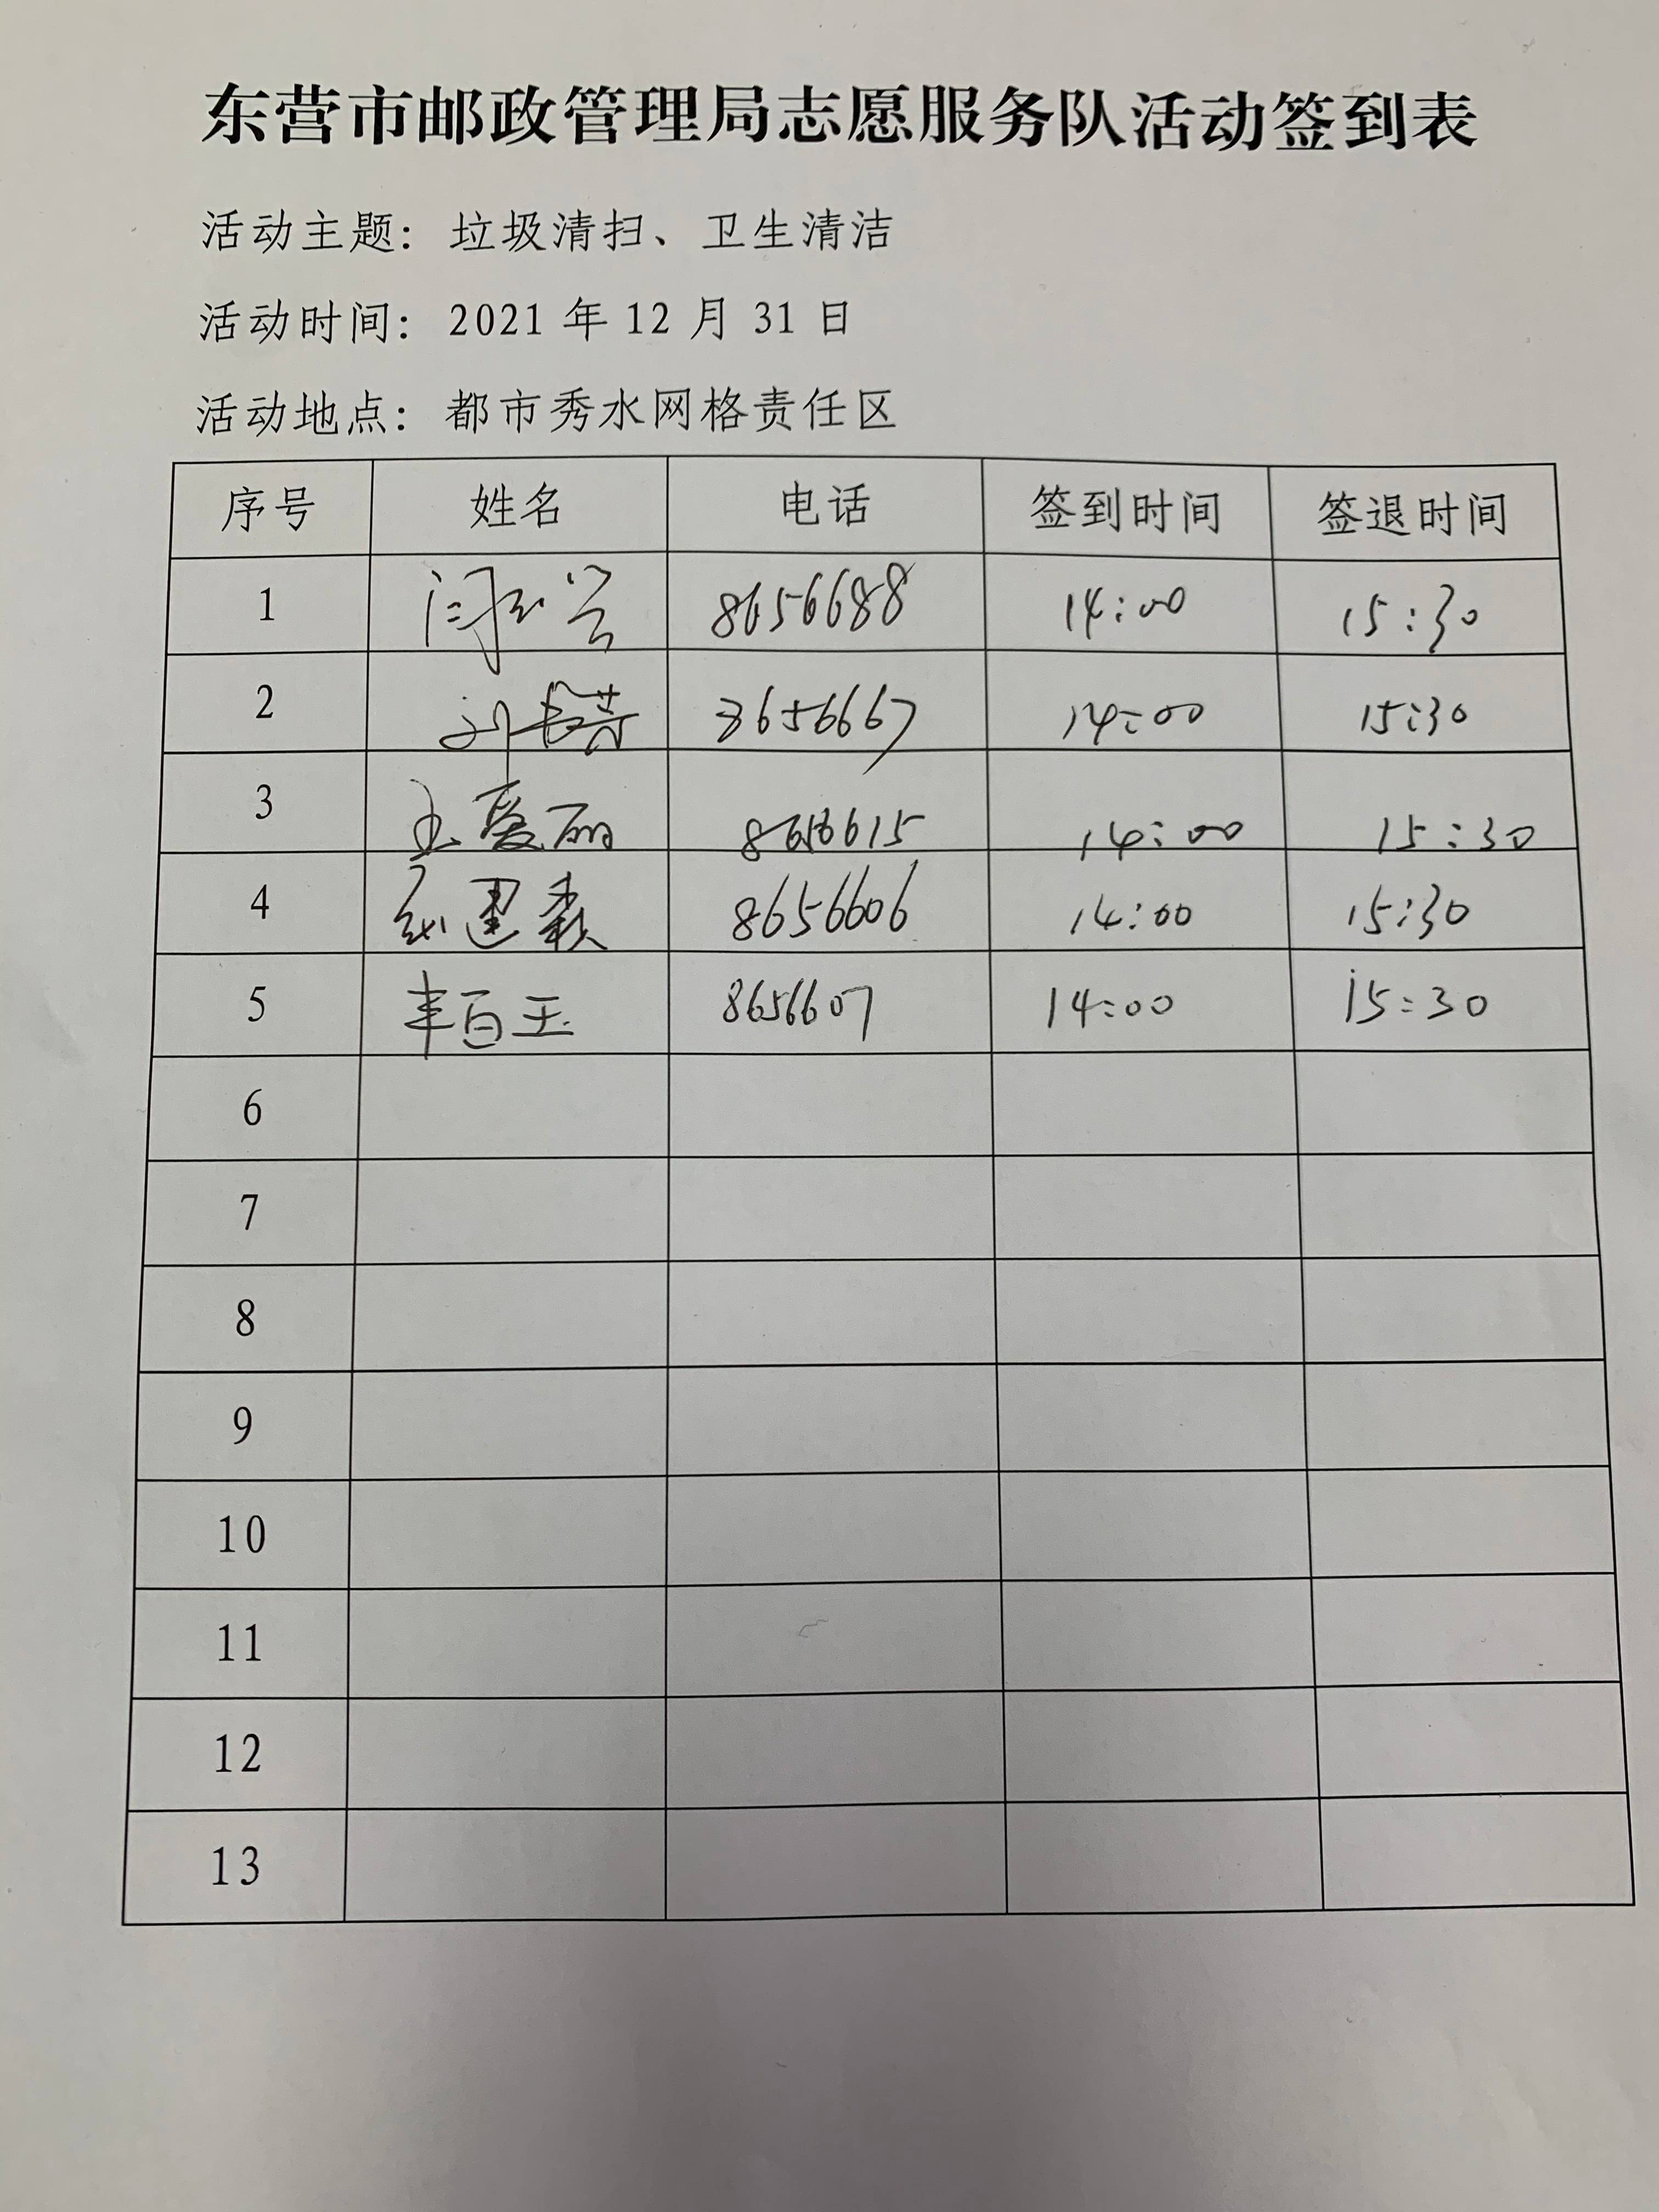 东营市邮政管理局志愿服务队活动签到表
活动主题：垃圾清扫、卫生清洁
活动时间：2021 年 12 月 31 日
活动地点：都市秀水网格责任区
序号 姓名 电话 签到时间 签退时间
1 8656688 14:00 15:30
2 8656667 14:00 15:30
3 王爱丽 8656615 14:00 15:30
4 8656606 14:00 15:30
5 丰百玉 8656607 14:00 15:30
6
7
8
9
10
11
12
13